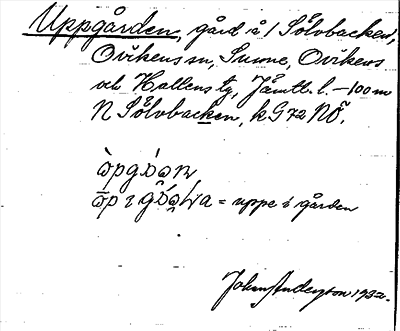 Uppgården, gård å 1 Sölvbacken,
Ovikens sn, Sunne, Ovikens
och Hallens tg, Jämtl. l. – 100 m
N Sölvbacken, k G 72 NÖ.
= uppe i gården
John Anderson 1932.